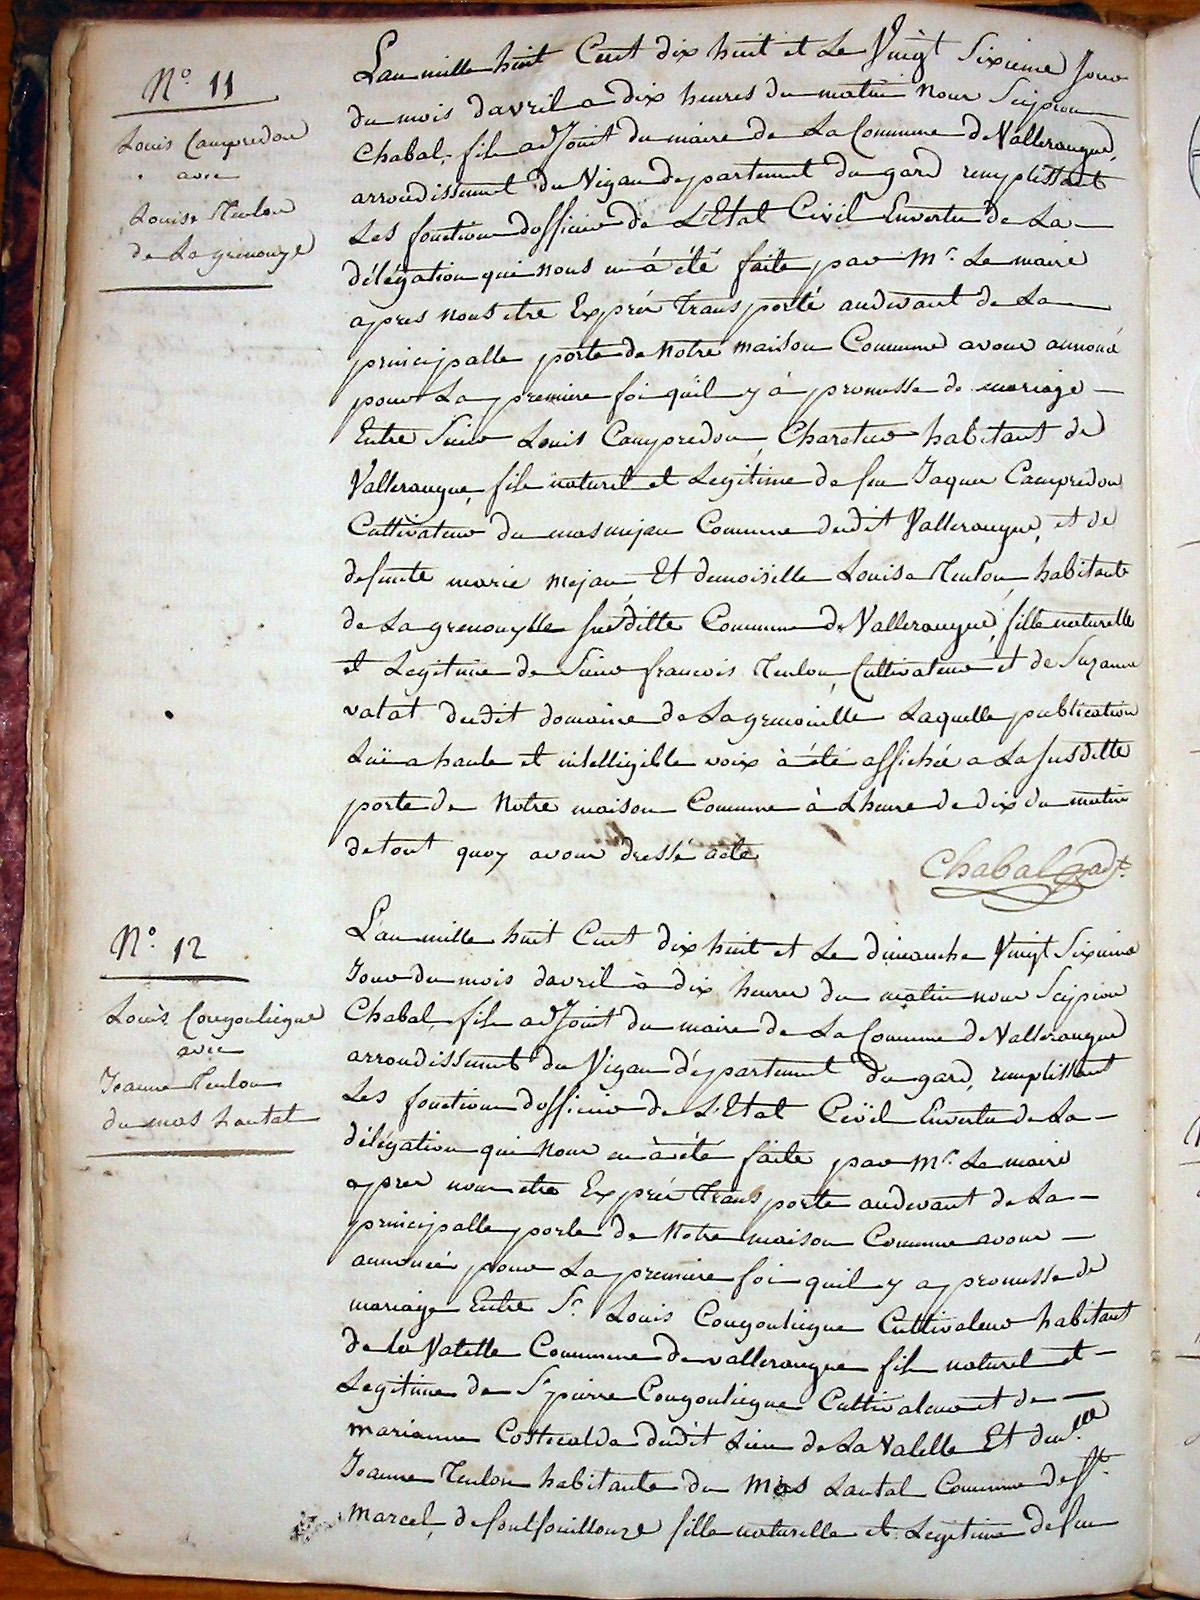 N.º 11
Louis Campredon
avec
Louise Teulon
de La grenouye
L'an mille huit Cent dix huit et Le Vingt Sixieme Jour
du mois d'avril a dix heures du matin nous Scipion
Chabal, fils adjoint du maire de La Commune de Valleraugue,
arrondissement du Vigan departement du gard remplissant
Les fonctions d'officier de L'Etat Civil En vertu de La
délégation qui nous en à été faite par M.r Le maire
apres nous etre Exprés transporté au devant de La
principalle porte de Notre maison Commune avons annoncé
pour La premiere foi quil y à promesse de mariage
Entre Sieur Louis Campredon, Charetier habitant de
Valleraugue, fils naturel et Legitime de feu Jaques Campredon
Cultivateur du mas mejan Commune dudit Valleraugue, et de
defunte marie Mejan, Et demoiselle Louise Teulon, habitante
de La grenouylle susditte Commune de Valleraugue, fille naturelle
et Legitime de Sieur francois Teulon, Cultivateur et de Suzanne
vatat dudit domaine de La grenouille Laquelle publication
Luë a haute et intelligible voix à été affichée a La susditte
porte de Notre maison Commune à L'heure de dix du matin
de tout quoy avons dressé acte
Chabal adt.
N.º 12
Louis Cougouliegne
avec
Jeanne Teulon
du mas Lautal
L'an mille huit Cent dix huit et Le dimanche Vingt Sixieme
Jour du mois d'avril à dix heures du matin nous Scipion
Chabal, fils adjoint du maire de La Commune de Valleraugue
arrondissement du Vigan département du gard, remplissant
Les fonctions d'officier de L'Etat Civil En vertu de La
délégation qui nous en à été faite par M.r Le maire
apres nous etre Exprés transporté au devant de La
principalle porte de Notre maison Commune avons
annoncé pour La premiere foi quil y a promesse de
mariage Entre S.r Louis Cougouliegne Cultivateur habitant
de la Valette Commune de valleraugue fils naturel et
Legitime de Sr pierre Cougouliegne Cultivateur et de
marianne Costecalde dudit Lieu de La Valelle Et dem.lle
Jeanne Teulon habitante du Mas Lautal Commune de St.
Marcel de fontfouillouze fille naturelle et Legitime de feu